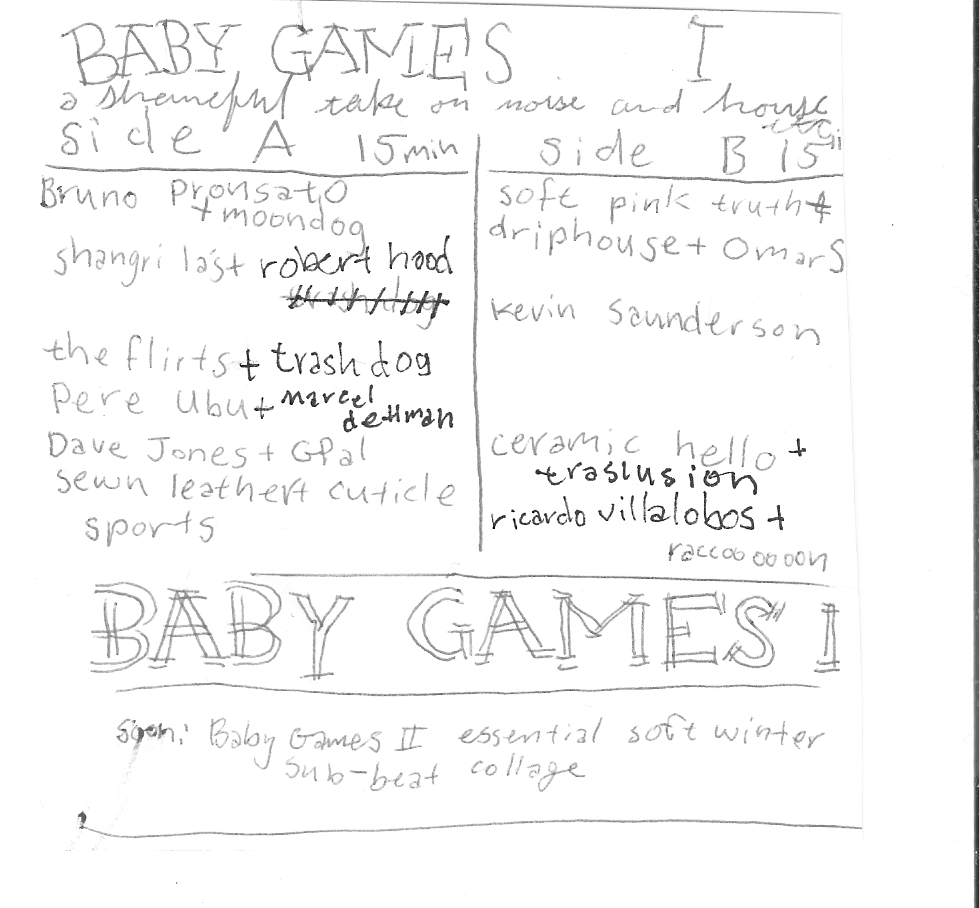 BABY GAMES I
a shameful take on noise and house
etc.
side A 15min
Bruno Pronsato
+moondog
shangri las+ robert hood
the flirts+ trashdog
Pere Ubu+ marcel
dettman
Dave Jones+ GPal
sewn leather+ cuticle
sports
side B 15
soft pink truth+
driphouse+ OmarS
kevin saunderson
ceramic hello +
traslusion
ricardo villalobos +
raccoooooon
BABY GAMES I
soon: Baby Games II essential soft winter
sub-beat collage